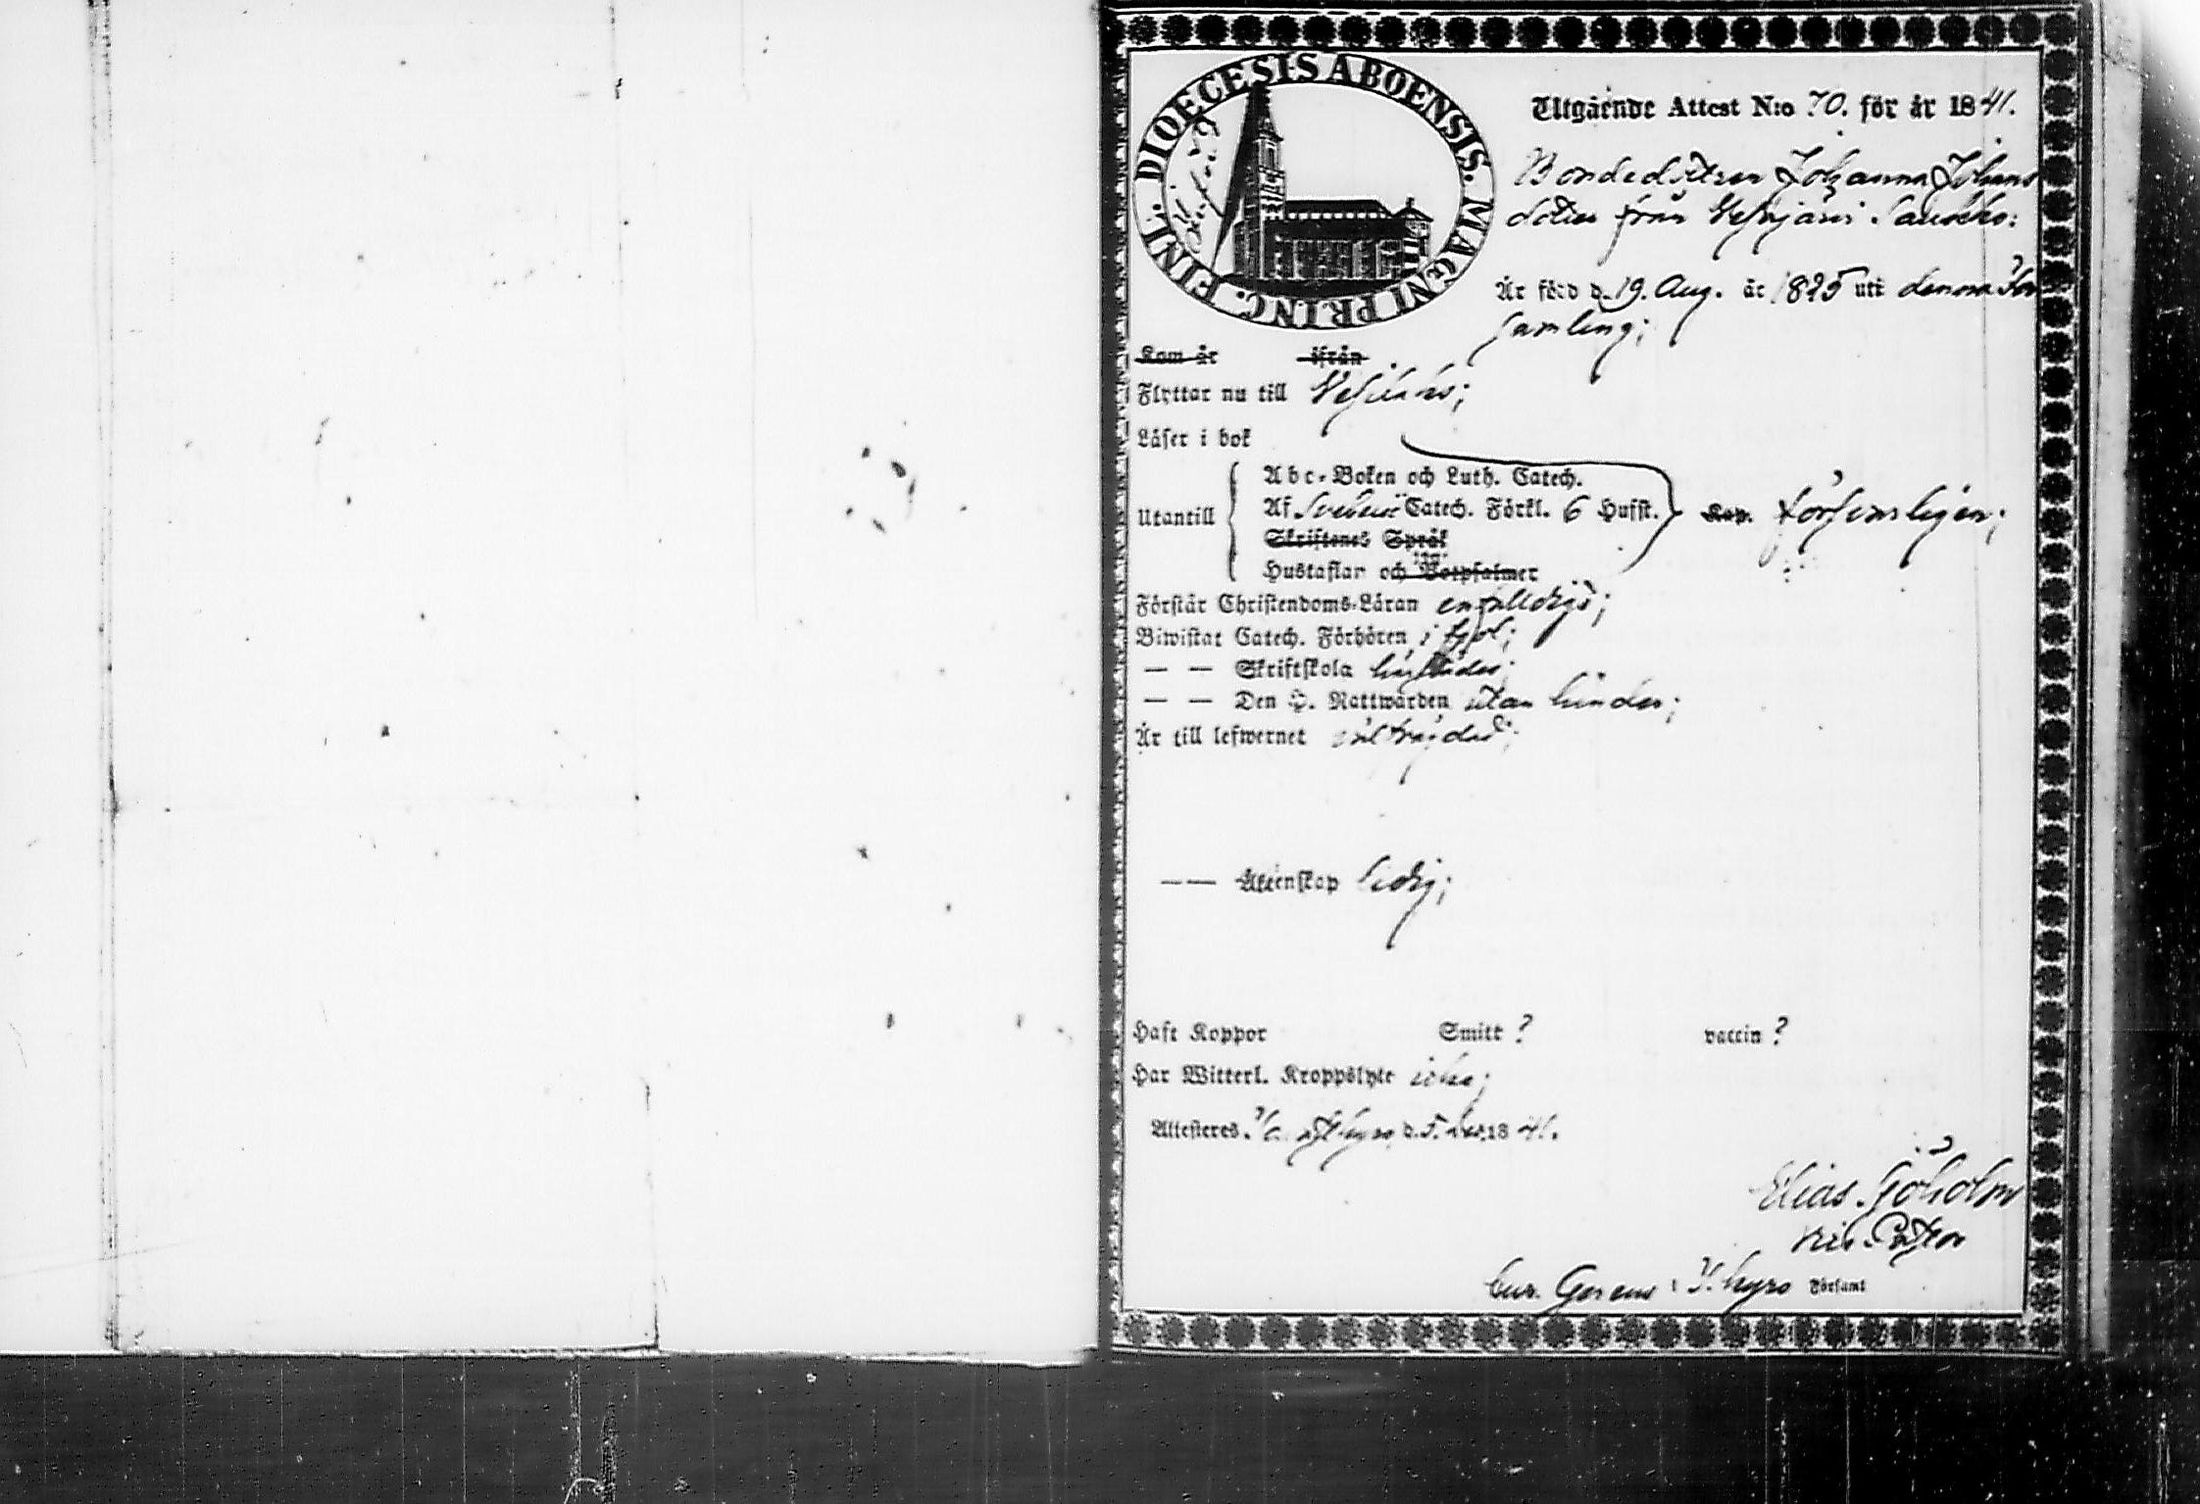 FINL. DIOECESIS ABOENSIS. MAGNI PRINC.
Utgående Attest N:o 70. för år 1841.
Bondedottren Johanna Johans
dotter från Vesajärvi
Är född d. 19. Aug. år 1825 uti denna För
samling;
Kom år ifrån
Flyttar nu till Vesilaks;
Läser i bok
Abc-Boken och Luth. Catech.
Utantill Af Svebelii Catech. Förkl. 6 Hufst. Kap. försvarligen;
Skriftenes Språk
Hustaflan och Botpsalmer
Förstår Christendoms-Läran enfaldigt;
Biwistat Catech. Förhören i fjol;
— — Skriftskola
— — Den H. Nattwarden utan hinder;
Är till lefwernet
— — Äktenskap ledig;
Haft Koppor Smitt ? vaccin ?
Har Witterl. Kroppslyte icke;
Attesteras d. 5. 1841.
Elias Sjöholm
Vice Pastor
Cur. Gerens i T. kyro Församl